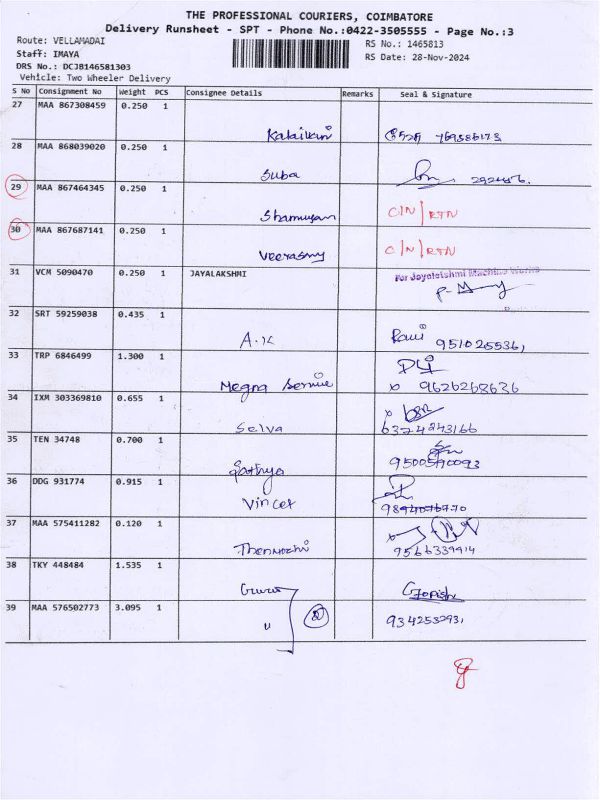 THE PROFESSIONAL COURIERS, COIMBATORE
Delivery Runsheet - SPT - Phone No.:0422-3505555 - Page No.:3
Route: VELLAMADAI
RS No.: 1465813
Staff: IMAYA
RS Date: 28-Nov-2024
DRS No.: DCJB146581303
Vehicle: Two Wheeler Delivery
S No Consignment No Weight PCS Consignee Details Remarks Seal & Signature
27 MAA 867308459 0.250 1
28 MAA 868039020 0.250 1
Suba
29 MAA 867464345 0.250 1
C/N/RTN
30 MAA 867687141 0.250 1
C/N/RTN
31 VCM 5090470 0.250 1 JAYALAKSHMI
For Jayalakshmi Machine Works
32 SRT 59259038 0.435 1
A.K
33 TRP 6846499 1.300 1
Megna Service 9626268636
34 IXM 303369810 0.655 1
Selva 6374243166
35 TEN 34748 0.700 1
Sathya
36 DDG 931774 0.915 1
Vincet
37 MAA 575411282 0.120 1
Thenmozhi 9566339914
38 TKY 448484 1.535 1
Guru
39 MAA 576502773 3.095 1
"